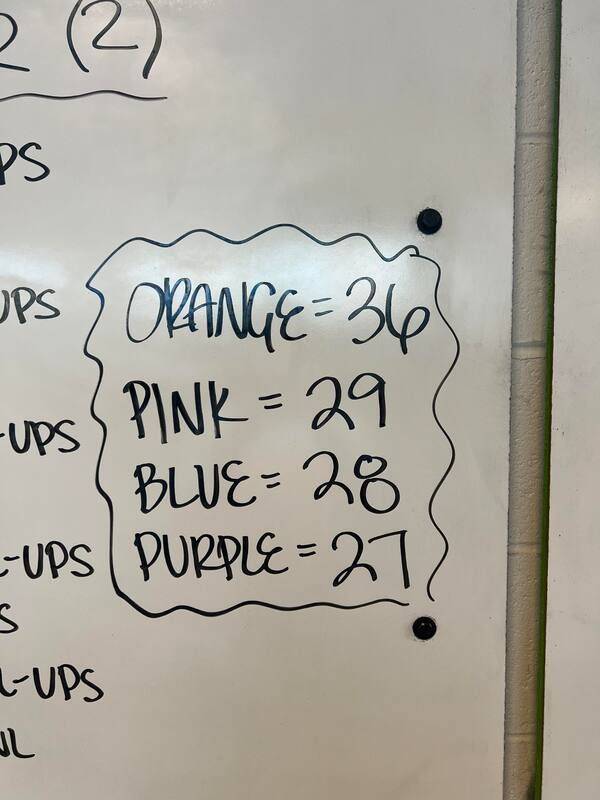 2 (2)
PS
UPS
ORANGE = 36
PINK = 29
-UPS
BLUE = 28
PURPLE = 27
-UPS
S
L-UPS